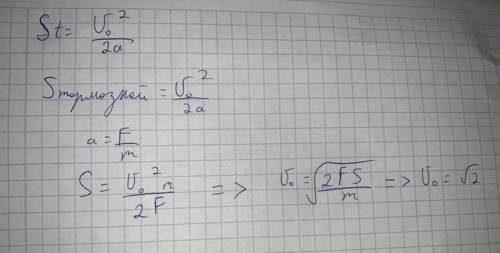 St = υ₀²/2a
Sтормозной = υ₀²/2a
a = F/m
S = υ₀²m/2F => υ₀ = √(2FS/m) => υ₀ = √2